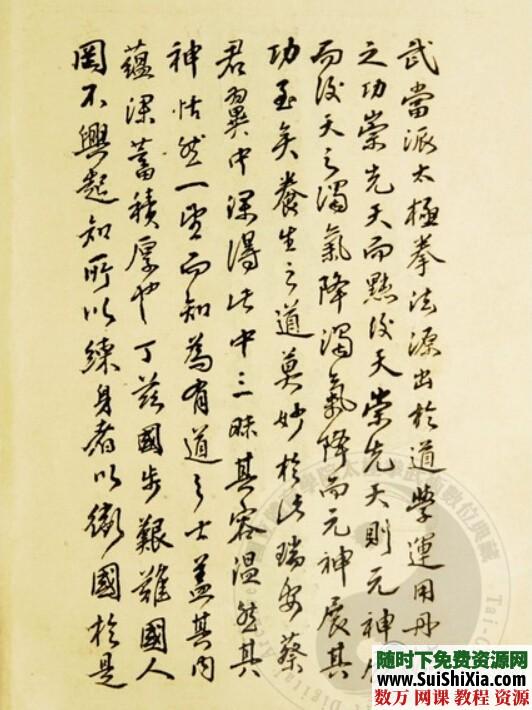 武當派太極拳法源出於道學運用丹
之功崇先天而黜後天崇先天則元神
而後天之濁氣降濁氣降而元神展其
功至矣養生之道莫妙於此瑞安蔡
君翼中深得此中三昧其容溫然其
神恬然一望而知為有道之士蓋其內
蘊深蓄積厚也丁茲國步艱難國人
罔不興起知所以練身者以衛國於是
學院太
武術數位典藏
Tai-C
Digital
随时下免费资源网
www.SuiShiXia.com
数万 网课 教程 资源